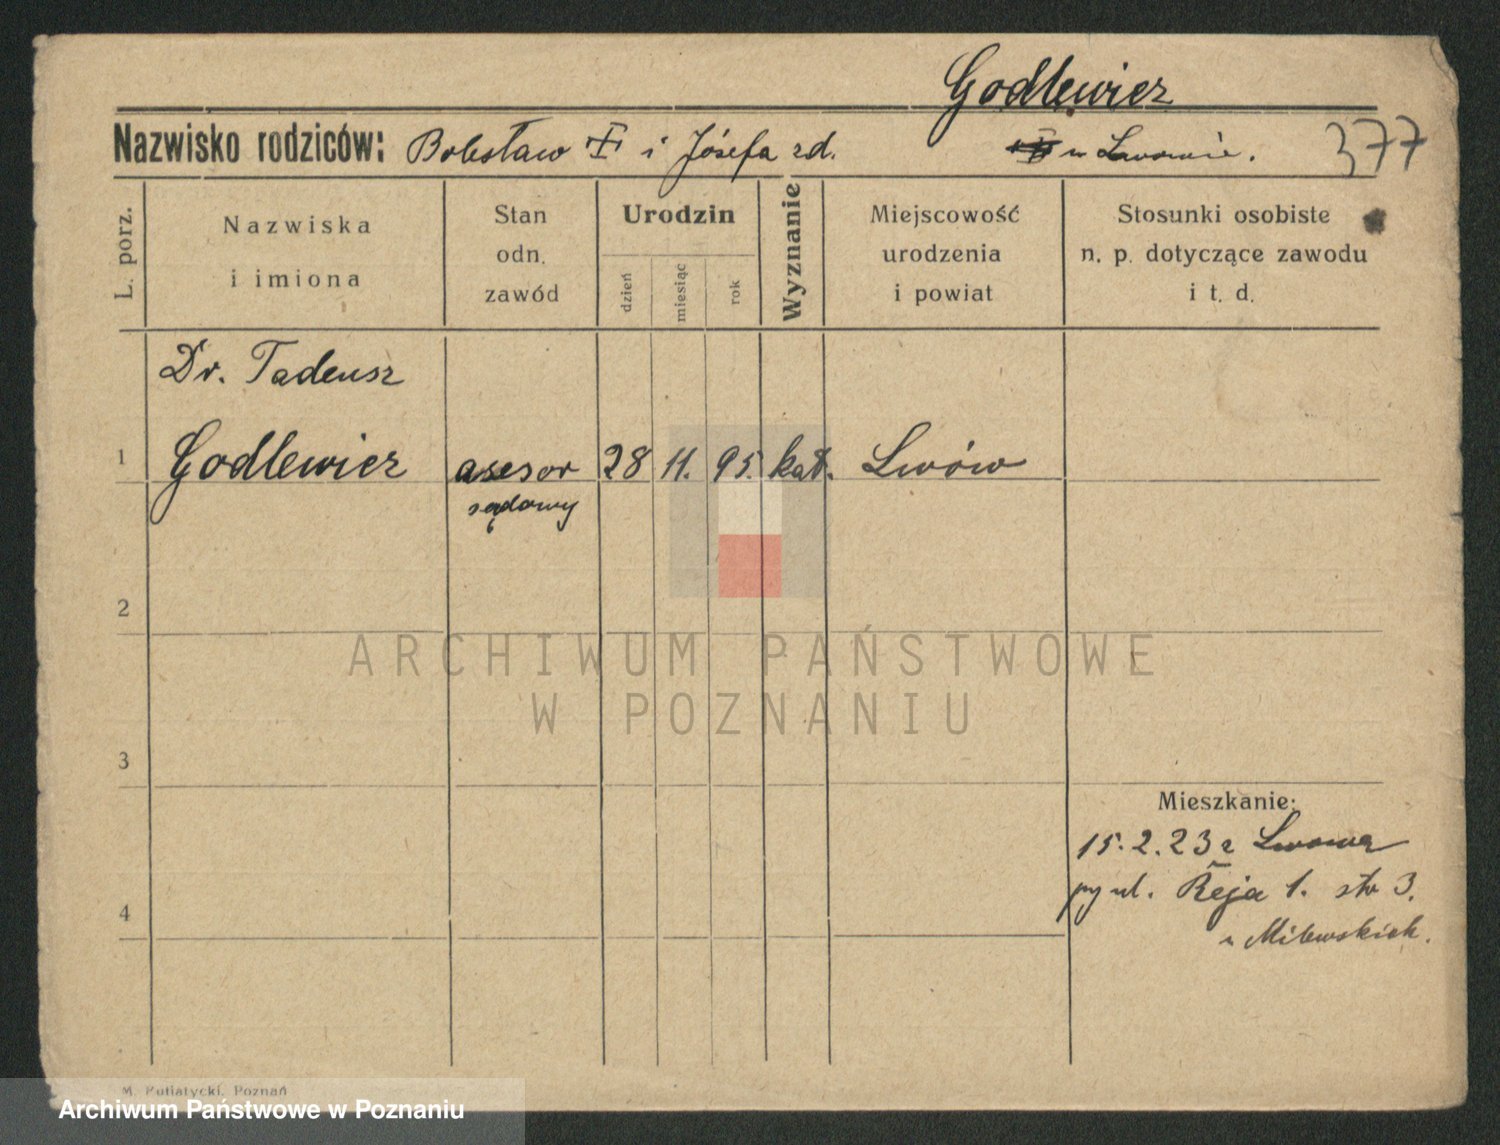 Godlewicz
Nazwisko rodziców: Bolesław i Józefa zd. w Lwowie. 377
L. porz.
Nazwiska
i imiona
Stan
odn.
zawód
Urodzin
dzień
miesiąc
rok
Wyznanie
Miejscowość
urodzenia
i powiat
Stosunki osobiste
n. p. dotyczące zawodu
i t. d.
Dr. Tadeusz
1 Godlewicz asesor 28 11. 95. kat. Lwów
sądowy
2
ARCHIWUM PAŃSTWOWE
W POZNANIU
3
Mieszkanie:
15.2.23 z Lwowa
ul. Reja 1. 3.
4
u Milewskich.
M. Putiatycki, Poznań
Archiwum Państwowe w Poznaniu